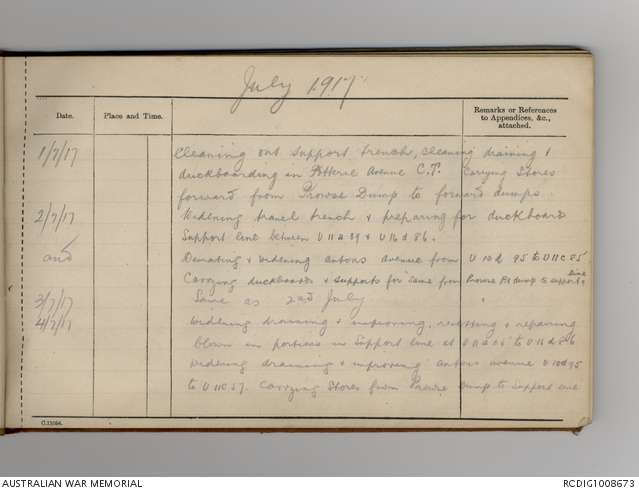 July 1917
Date.
Place and Time.
Remarks or References
to Appendices, &c.,
attached.
1/7/17
Cleaning out support trench, cleaning draining &
duckboarding in Potterie Avenue C.T. Carrying Stores
forward from Prowse Dump to forward dumps.
2/7/17
Widening travel trench & preparing for duckboards
Support line between U 11 a 39 & U 16 d 86.
and
Deviating & widening antons avenue from U 10 d 95 to U 11 C 85
Carrying duckboards & supports for same from Prowse Pt dump to support line
3/7/17
Same as 2nd July
4/7/17
Widening draining & improving, revetting & repairing
blown in portions in Support line at to U 16 d 86
Widening draining & improving antons avenue U 10 d 95
to U 11 C 37. Carrying Stores from Prowse Dump to Support line
G.11054.
AUSTRALIAN WAR MEMORIAL
RCDIG1008673